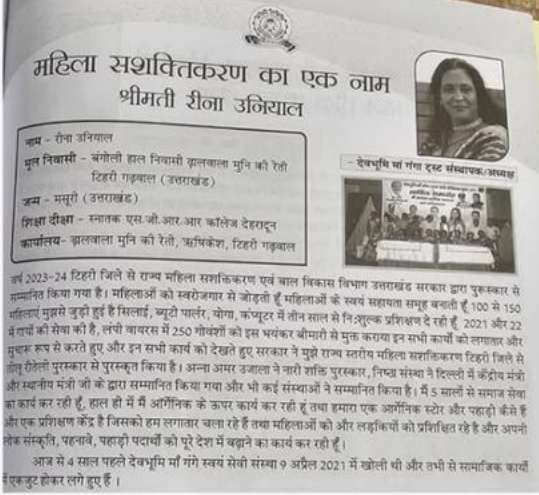 महिला सशक्तिकरण का एक नाम
श्रीमती रीना उनियाल
नाम - रीना उनियाल
मूल निवासी - बंगोली हाल निवासी ढ़ालवाला मुनि की रेती
टिहरी गढ़वाल (उत्तराखंड)
जन्म - मसूरी (उत्तराखंड)
शिक्षा दीक्षा - स्नातक एस.जी.आर.आर कॉलेज देहरादून
कार्यालय- ढ़ालवाला मुनि की रेती, ऋषिकेश, टिहरी गढ़वाल
- देवभूमि मां गंगा ट्रस्ट संस्थापक/अध्यक्ष
वर्ष 2023-24 टिहरी जिले से राज्य महिला सशक्तिकरण एवं बाल विकास विभाग उत्तराखंड सरकार द्वारा पुरूस्कार से
सम्मानित किया गया है। महिलाओं को स्वरोजगार से जोड़ती हूँ महिलाओं के स्वयं सहायता समूह बनाती हूँ 100 से 150
महिलाएं मुझसे जुड़ी हुई है सिलाई, ब्यूटी पार्लर, योगा, कंप्यूटर में तीन साल से नि:शुल्क प्रशिक्षण दे रही हूँ, 2021 और 22
में गायों की सेवा की है, लंपी वायरस में 250 गोवंशों को इस भयंकर बीमारी से मुक्त कराया इन सभी कार्यो को लगातार और
सुचारू रूप से करते हुए और इन सभी कार्य को देखते हुए सरकार ने मुझे राज्य स्तरीय महिला सशक्तिकरण टिहरी जिले से
तीलू रौतेली पुरस्कार से पुरस्कृत किया है। अन्ना अमर उजाला ने नारी शक्ति पुरस्कार, निष्ठा संस्था ने दिल्ली में केंद्रीय मंत्री
और स्थानीय मंत्री जी के द्वारा सम्मानित किया गया और भी कई संस्थाओं ने सम्मानित किया है। मैं 5 सालों से समाज सेवा
का कार्य कर रही हूँ, हाल ही में मैं ऑर्गेनिक के ऊपर कार्य कर रही हूं तथा हमारा एक आर्गेनिक स्टोर और पहाड़ी कैसे हैं
और एक प्रशिक्षण केंद्र है जिसको हम लगातार चला रहे हैं तथा महिलाओं को और लड़कियों को प्रशिक्षित रहे है और अपनी
लोक संस्कृति, पहनावे, पहाड़ी पदार्थों को पूरे देश में बढ़ाने का कार्य कर रही हूँ।
आज से 4 साल पहले देवभूमि माँ गंगे स्वयं सेवी संस्था 9 अप्रैल 2021 में खोली थी और तभी से सामाजिक कार्यों
में एकजुट होकर लगे हुए हैं ।